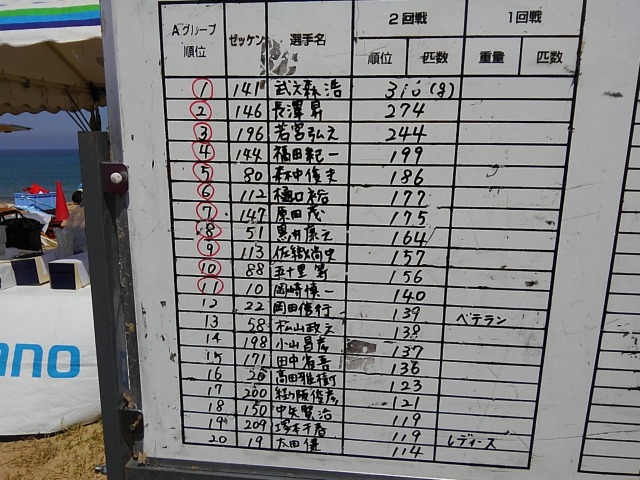 Aグループ 順位 ゼッケン 選手名 2回戦 順位 匹数 1回戦 重量 匹数
1 141 武次森浩 310(g)
2 146 長澤昇 274
3 196 若宮弘之 244
4 144 福田紀一 199
5 80 森中俊夫 186
6 112 樋口裕 177
7 147 原田茂 175
8 51 黒井康之 164
9 113 佐織尚史 157
10 88 五十里 156
11 10 岡崎慎一 140
12 22 岡田信行 139
13 58 松山政之 138 ベテラン
14 198 小山昌彦 137
15 171 田中省吾 136
16 高田雅樹 123
17 200 俊彦 121
18 150 中矢賢治 119
19 209 塚本千春 119 レディース
20 19 太田健 114
NO